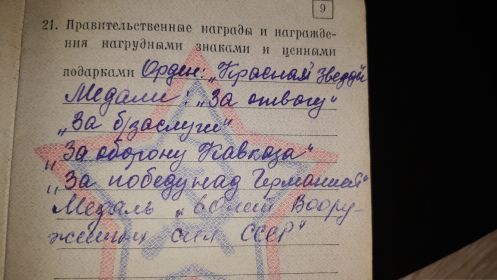 9
21. Правительственные награды и награжде-
ния нагрудными знаками и ценными
подарками Орден: „Красная Звезда"
Медали: „За отвагу"
„За б/заслуги"
„За оборону Кавказа"
„За победу над Германией"
Медаль „50 лет Воору-
женных сил СССР"